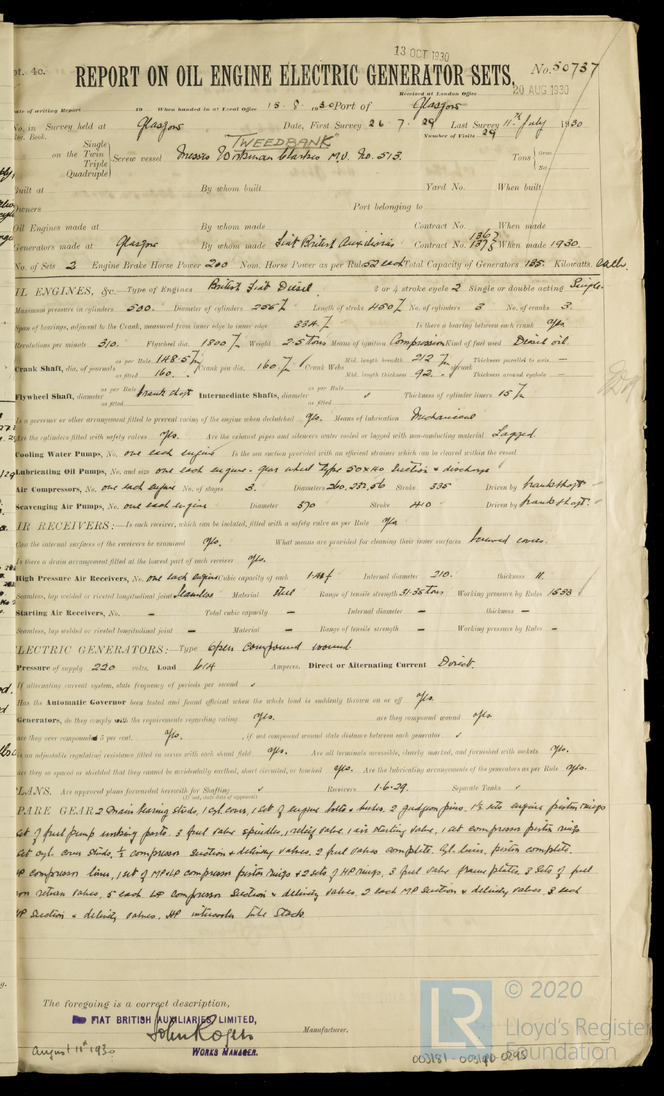 13 OCT 1930
pt. 4c. REPORT ON OIL ENGINE ELECTRIC GENERATOR SETS. No. 50737
Received at London Office 20 AUG 1930
ate of writing Report 19 When handed in at Local Office 18. 8. 1930 Port of Glasgow
No. in Survey held at Glasgow Date, First Survey 26. 7. 29 Last Survey 11th July 1930
Book. Number of Visits 29
TWEEDBANK
Single
on the Twin
Triple
Quadruple
Screw vessel Messrs Workman Clark's M.V. No. 513. Tons Gross Net
Built at By whom built Yard No. When built
Owners Port belonging to
Oil Engines made at By whom made Contract No. When made
Generators made at Glasgow By whom made Fiat British Auxiliaries Contract No. 1367 1373 When made 1930
No. of Sets 2 Engine Brake Horse Power 200 Nom. Horse Power as per Rule 52 each Total Capacity of Generators 135 Kilowatts each.
IL ENGINES, &c. Type of Engines British Fiat Diesel 2 or 4 stroke cycle 2 Single or double acting Single.
Maximum pressure in cylinders 500. Diameter of cylinders Length of stroke No. of cylinders 3 No. of cranks 3.
Span of bearings, adjacent to the Crank, measured from inner edge to inner edge Is there a bearing between each crank yes
Revolutions per minute 310. Flywheel dia. 1800 Weight 2.5 tons Means of ignition Compression Kind of fuel used Diesel oil
Crank Shaft, dia. of journals as per Rule 148.5 as fitted 160. Crank pin dia. 160. Crank Webs Mid. length breadth 212 Mid. length thickness 92. Thickness parallel to axis – Thickness around eyehole –
Flywheel Shaft, diameter as per Rule as fitted Crank shaft Intermediate Shafts, diameter as per Rule as fitted Thickness of cylinder liners 15
Is a governor or other arrangement fitted to prevent racing of the engine when declutched yes. Means of lubrication Mechanical
Are the cylinders fitted with safety valves yes. Are the exhaust pipes and silencers water cooled or lagged with non-conducting material Lagged.
Cooling Water Pumps, No. one each engine Is the sea suction provided with an efficient strainer which can be cleared within the vessel
Lubricating Oil Pumps, No. and size one each engine - gear wheel type 50 x 40 suction & discharge
Air Compressors, No. one each engine No. of stages 3. Diameters Stroke 335 Driven by crank shaft.
Scavenging Air Pumps, No. one each engine Diameter 570 Stroke 410 Driven by crank shaft.
IR RECEIVERS:— Is each receiver, which can be isolated, fitted with a safety valve as per Rule yes
Can the internal surfaces of the receivers be examined yes. What means are provided for cleaning their inner surfaces Screwed cover.
Is there a drain arrangement fitted at the lowest part of each receiver yes.
High Pressure Air Receivers, No. one each engine Cubic capacity of each Internal diameter 210. thickness 11.
Seamless, lap welded or riveted longitudinal joint Seamless Material Steel Range of tensile strength 31-35 tons Working pressure by Rules 1533
Starting Air Receivers, No. – Total cubic capacity – Internal diameter – thickness –
Seamless, lap welded or riveted longitudinal joint – Material – Range of tensile strength – Working pressure by Rules –
LECTRIC GENERATORS:— Type Open compound wound
Pressure of supply 220 volts. Load 614 Amperes. Direct or Alternating Current Direct.
If alternating current system, state frequency of periods per second
Has the Automatic Governor been tested and found efficient when the whole load is suddenly thrown on or off yes.
Generators, do they comply with the requirements regarding rating yes. are they compound wound yes
are they over compounded 5 per cent. yes. , if not compound wound state distance between each generator
is an adjustable regulating resistance fitted in series with each shunt field yes. Are all terminals accessible, clearly marked, and furnished with sockets yes.
are they so spaced or shielded that they cannot be accidentally earthed, short circuited, or touched yes. Are the lubricating arrangements of the generators as per Rule yes.
PLANS. Are approved plans forwarded herewith for Shafting Receivers 1-6-29. Separate Tanks
(If not, state date of approval)
PARE GEAR 2 main bearing studs, 1 cyl. cover, 1 set of engine bolts & bushes. 2 gudgeon pins. 1½ sets engine piston rings
set of fuel pump working parts. 3 fuel valve spindles, 1 relief valve. 1 air starting valve, 1 set compressor piston rings
set cyl. cover studs, ½ compressor suction & delivery valves. 2 fuel valves complete. Cyl. liner, piston complete.
HP compressor liner, 1 set of MP & LP compressor piston rings & 2 sets of HP rings, 3 fuel valve plates, 3 sets of fuel
non return valves, 5 each LP compressor suction & delivery valves, 2 each MP suction & delivery valves. 3 each
HP suction & delivery valves. HP intercooler tube stack.
The foregoing is a correct description,
FIAT BRITISH AUXILIARIES LIMITED,
John Rogers Manufacturer.
WORKS MANAGER.
August 11th 1930
LR © 2020
Lloyd's Register
Foundation
003181-003190-0295